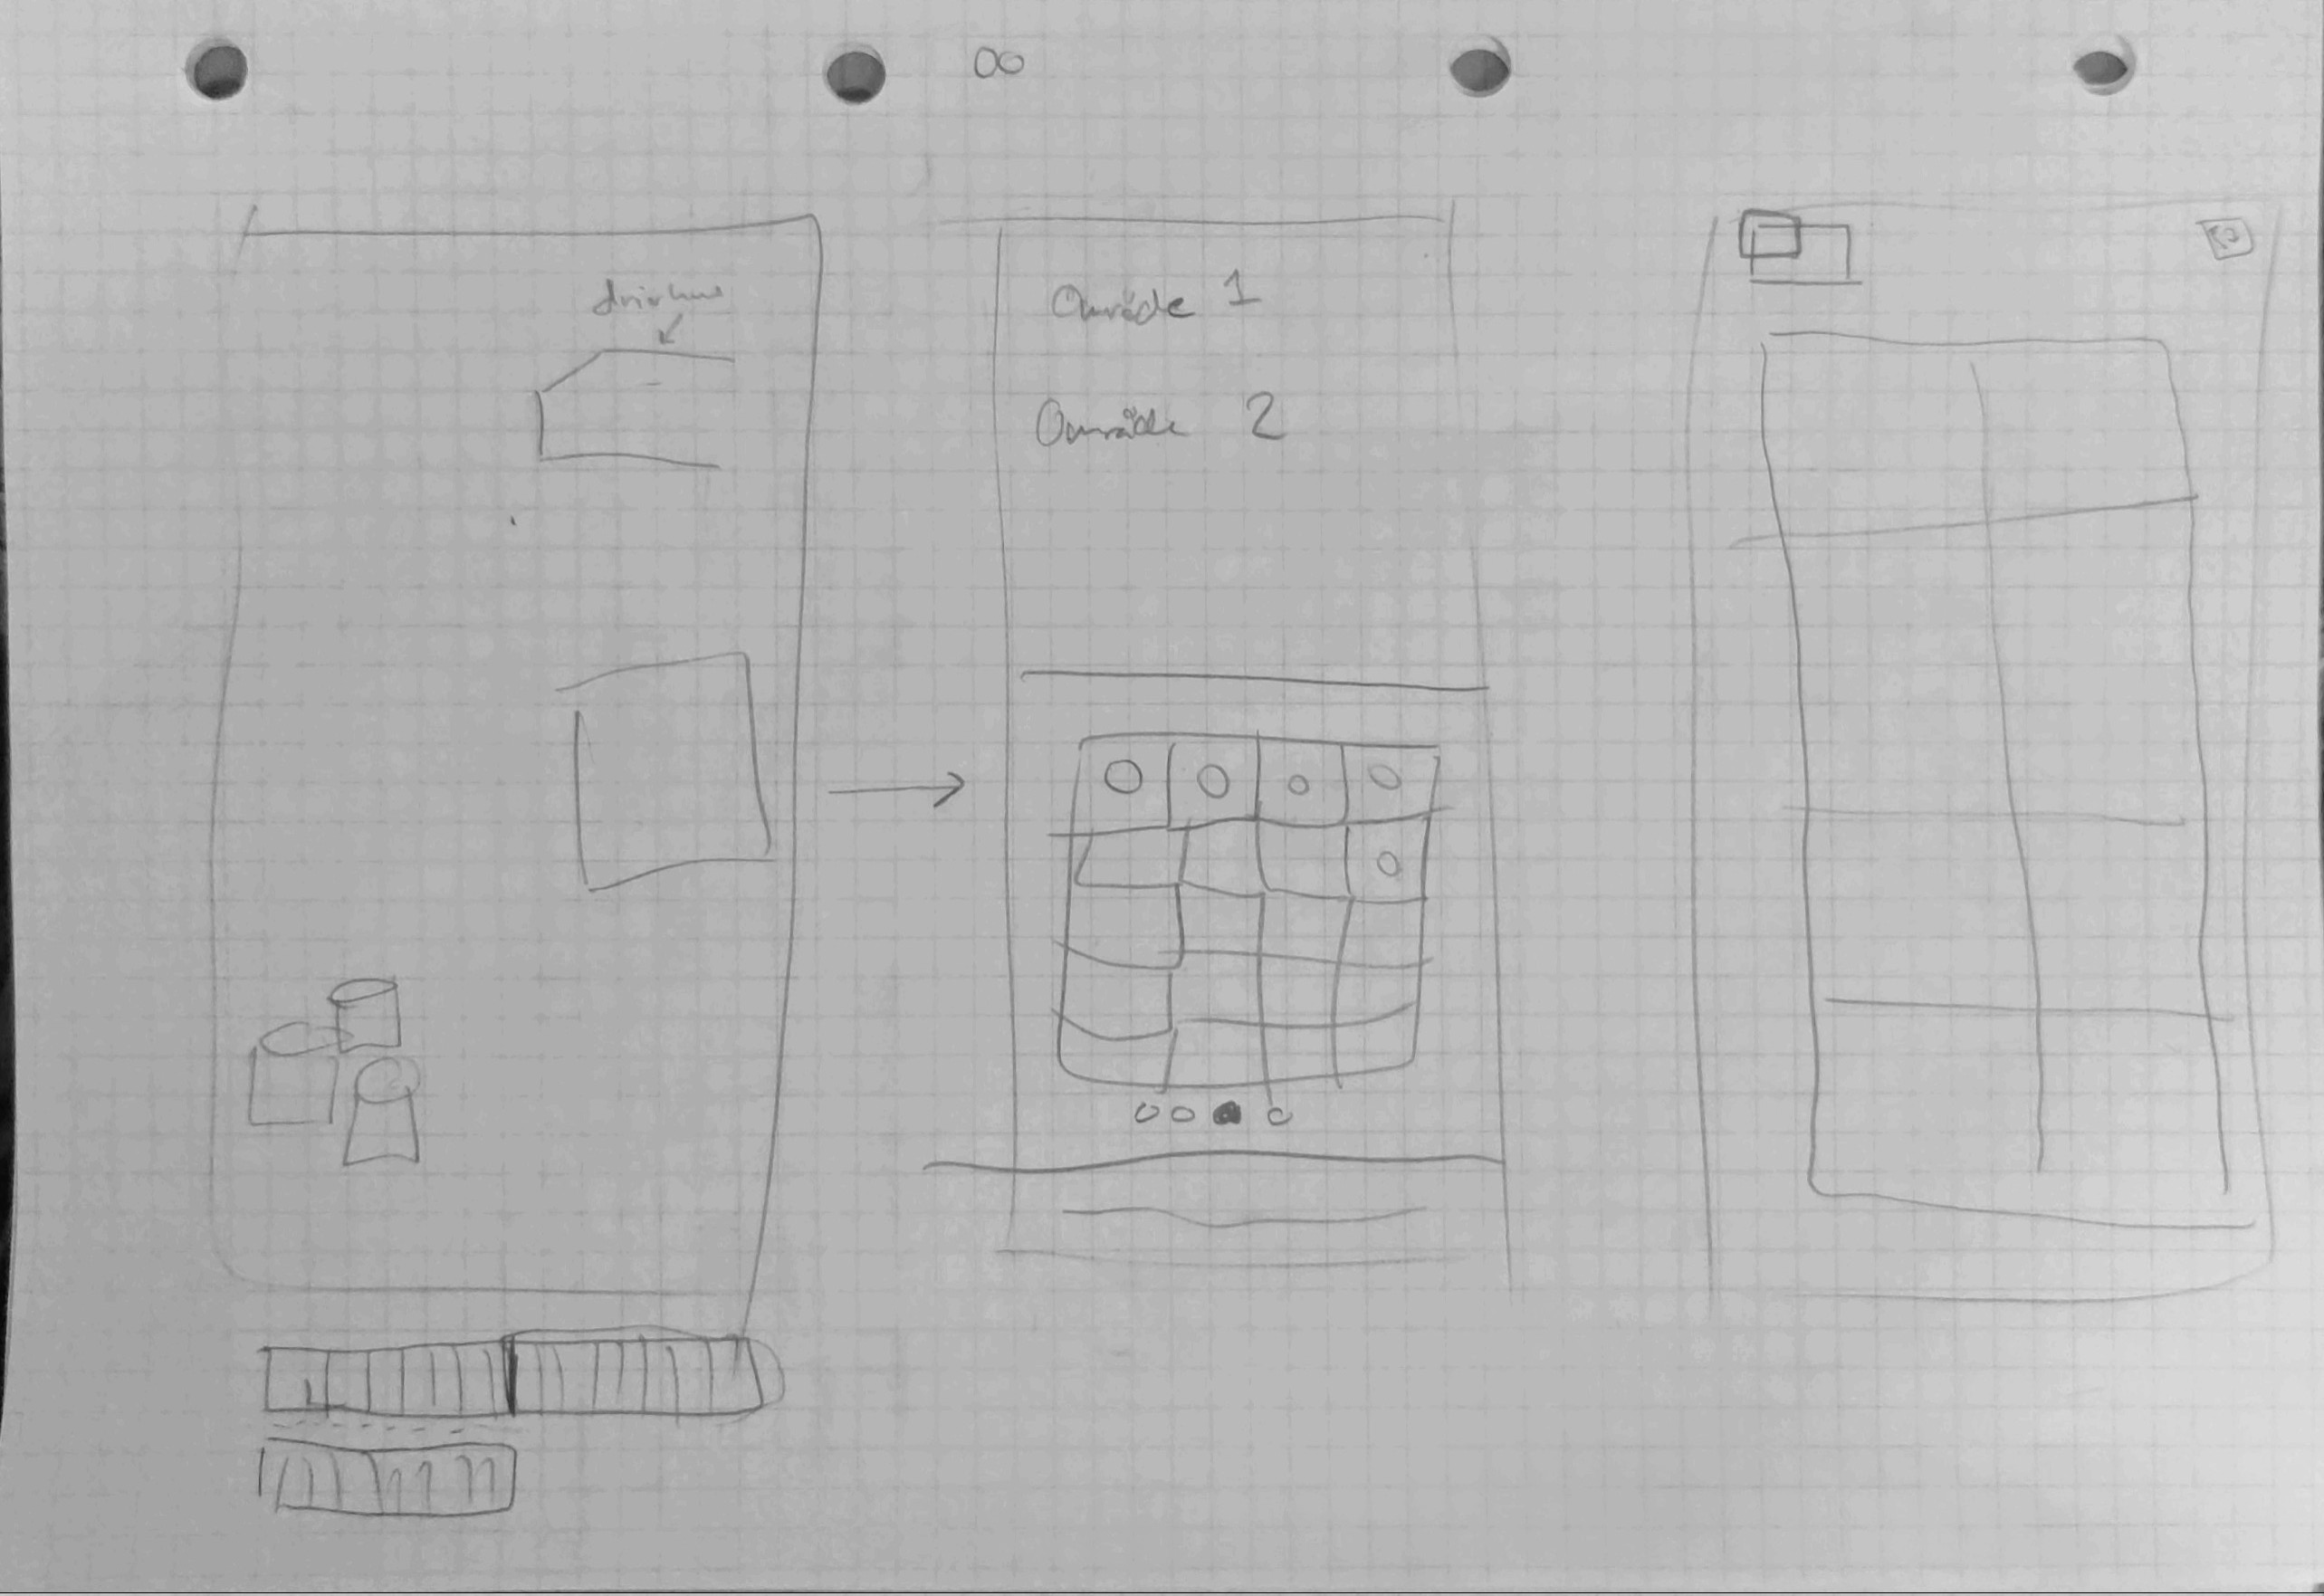 drivhus
Område 1
Område 2